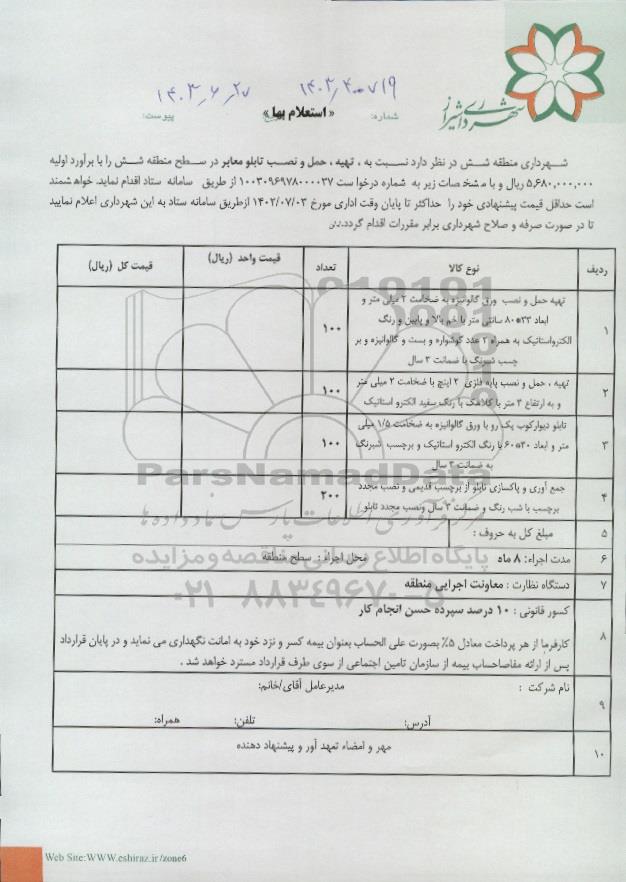 شهرداری شیراز
۱۴۰۳٫۴۰۰۷۱۹
۱۴۰۳٫۶٫۲۷
شماره:
« استعلام بها »
پیوست:
شهرداری منطقه شش در نظر دارد نسبت به ، تهیه ، حمل و نصب تابلو معابر در سطح منطقه شش را با برآورد اولیه
۵,۶۸۰,۰۰۰,۰۰۰ ریال و با مشخصات زیر به شماره درخواست ۱۰۰۳۰۹۶۹۷۸۰۰۰۰۳۷ از طریق سامانه ستاد اقدام نماید. خواهشمند
است حداقل قیمت پیشنهادی خود را حداکثر تا پایان وقت اداری مورخ ۱۴۰۲/۰۷/۰۳ ازطریق سامانه ستاد به این شهرداری اعلام نمایید
تا در صورت صرفه و صلاح شهرداری برابر مقررات اقدام گردد.
ردیف نوع کالا تعداد قیمت واحد (ریال) قیمت کل (ریال)
۱ تهیه حمل و نصب ورق گالوانیزه به ضخامت ۲ میلی متر و
ابعاد ۳۳*۸۰ سانتی متر با خم بالا و پایین و رنگ
الکترواستاتیک به همراه ۲ عدد گوشواره و بست و گالوانیزه و بر ۱۰۰
چسب شبرنگ با ضمانت ۳ سال
۲ تهیه ، حمل و نصب پایه فلزی ۲ اینچ با ضخامت ۲ میلی متر ۱۰۰
و به ارتفاع ۳ متر با کلاهک با رنگ سفید الکترو استاتیک
۳ تابلو دیوارکوب یک رو با ورق گالوانیزه به ضخامت ۱/۵ میلی
متر و ابعاد ۳۰*۶۰ با رنگ الکترو استاتیک و برچسب شبرنگ ۱۰۰
به ضمانت ۳ سال
۴ جمع آوری و پاکسازی تابلو از برچسب قدیمی و نصب مجدد ۲۰۰
برچسب با شب رنگ و ضمانت ۳ سال ونصب مجدد تابلو
۵ مبلغ کل به حروف :
۶ مدت اجراء: ۸ ماه محل اجراء : سطح منطقه
۷ دستگاه نظارت : معاونت اجرایی منطقه
۸ کسور قانونی : ۱۰ درصد سپرده حسن انجام کار
کارفرما از هر پرداخت معادل ۵٪ بصورت علی الحساب بعنوان بیمه کسر و نزد خود به امانت نگهداری می نماید و در پایان قرارداد
پس از ارائه مفاصاحساب بیمه از سازمان تامین اجتماعی از سوی طرف قرارداد مسترد خواهد شد .
۹ نام شرکت : مدیرعامل آقای/خانم:
آدرس: تلفن: همراه:
۱۰ مهر و امضاء تعهد آور و پیشنهاد دهنده
ParsNamadData
مرکز فرآوری اطلاعات پارس نماد داده ها
پایگاه اطلاع رسانی مناقصه و مزایده
۰۲۱-۸۸۳۴۹۶۷۰-۵
Web Site:WWW.eshiraz.ir/zone6